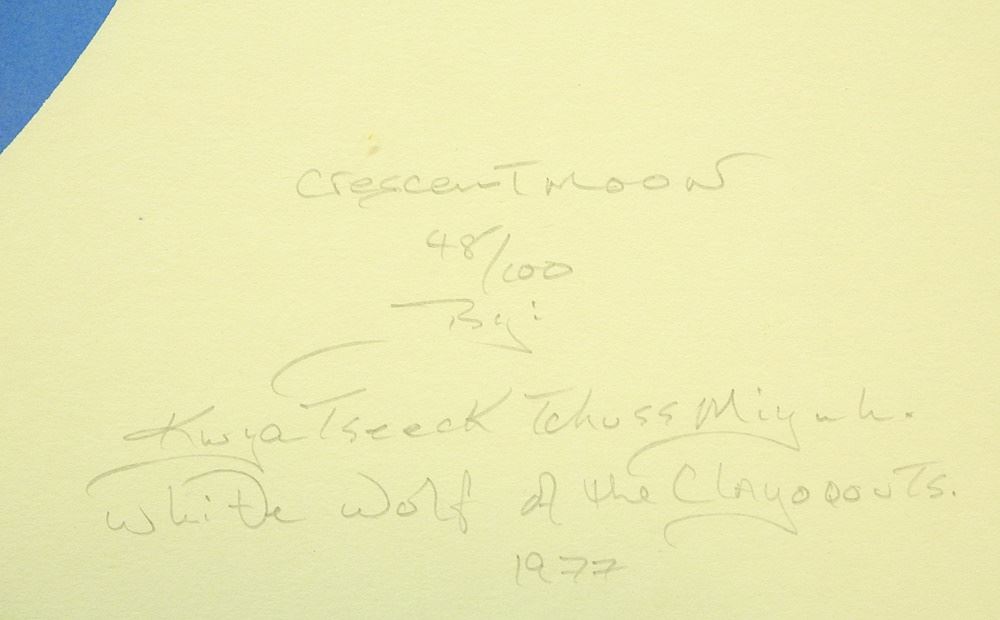 Crescent Moon
48/100
By:
Kwya Tseeck Tchuss Miyuh.
White Wolf of the Clayoqouts.
1977